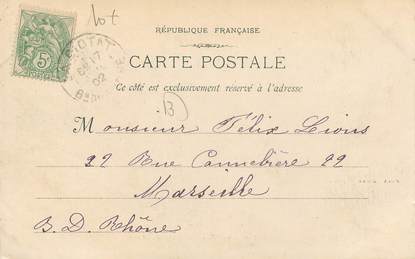 lot
RÉPUBLIQUE FRANÇAISE
CARTE POSTALE
Ce côté est exclusivement réservé à l'adresse
B
Monsieur Félix Lions
22 Rue Cannebière 22
Marseille
B. D. Rhône